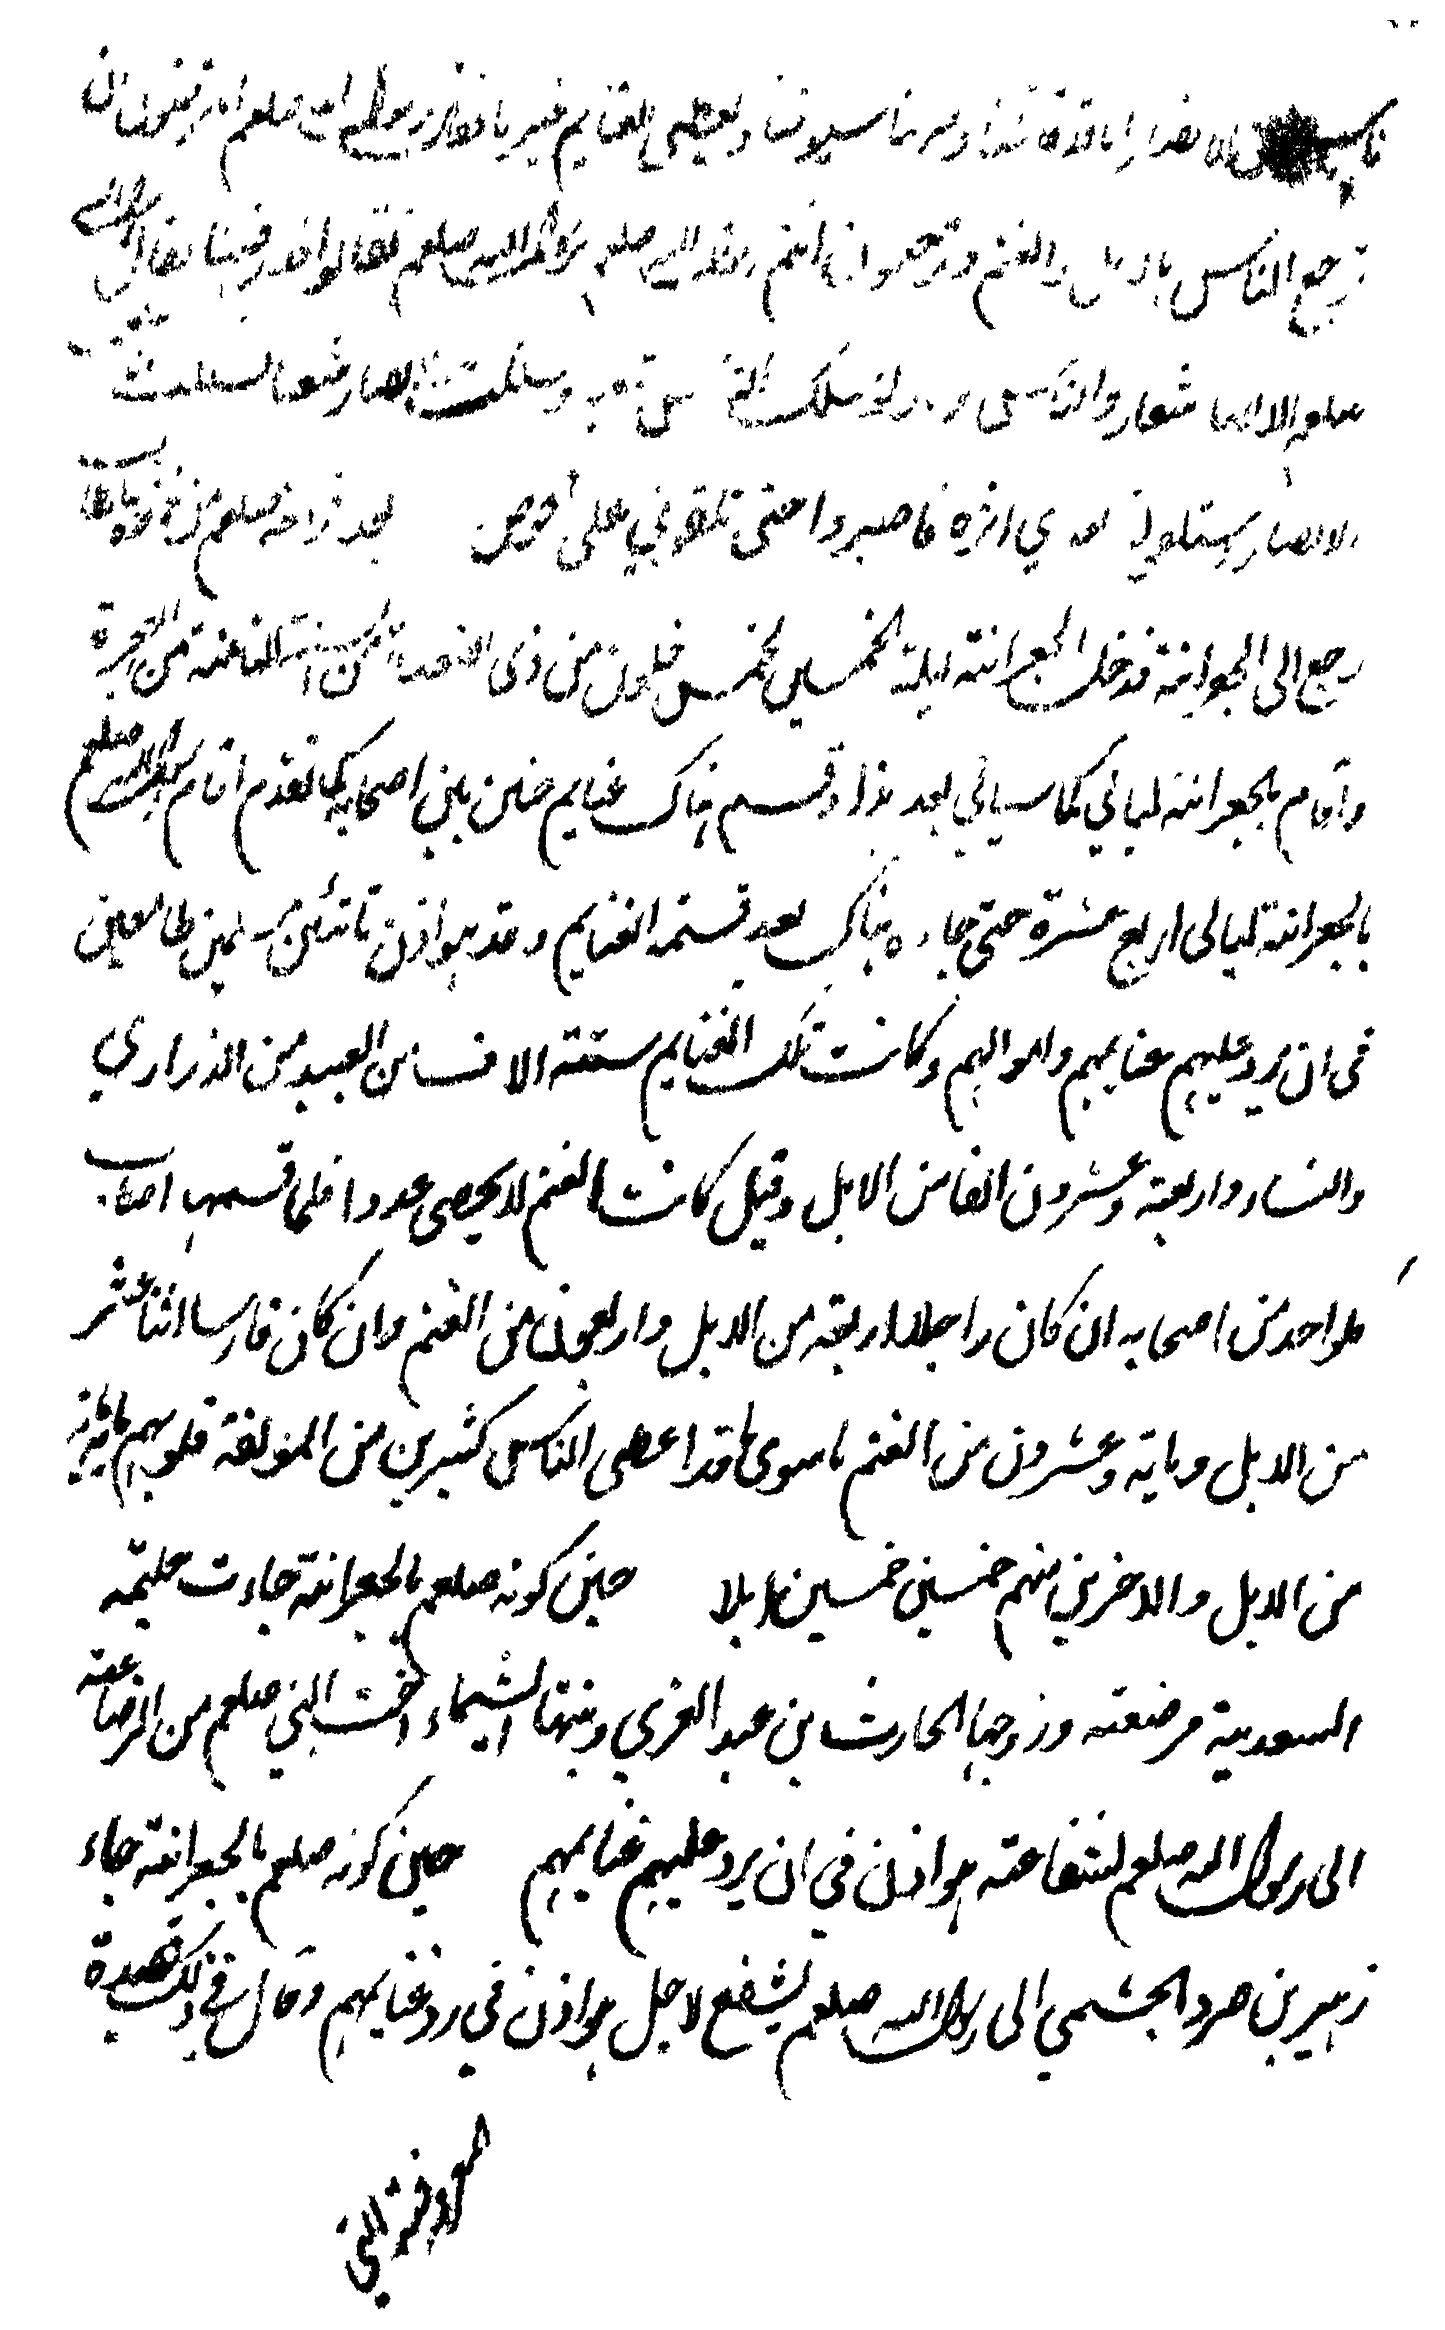 ناس من الانصار اذا كانت شدة ندعى ويعطى الغنايم غيرنا فقال رسول الله صلعم اما ترضون ان
يرجع الناس بالابل والغنم وترجعوا انتم برسول الله صلعم فقالوا قد رضينا فقال النبي
صلعم الانصار شعار والناس دثار لو سلك الناس شعبا وسلكت الانصار شعبا لسلكت شعب
الانصار ستلقون بعدي اثرة فاصبروا حتى تلقوني على الحوض بعد فراغه صلعم من غزوة الطائف
رجع الى الجعرانة فدخل الجعرانة ليلة الخميس لخمس خلون من ذى القعدة من السنة الثامنة من الهجرة
واقام بالجعرانة ليالي كما سيأتي بعد هذا وقسم هناك غنايم حنين بين اصحابه كما تقدم اقام رسول الله صلعم
بالجعرانة ليالى اربع عشرة حتى جاءه هناك بعد قسمة الغنايم وفد هوازن تائبين مسلمين طامعين
فى ان يرد عليهم غنايمهم واموالهم وكانت تلك الغنايم ستة الاف من العبيد من الذراري
والنساء واربعة وعشرون الفا من الابل وقيل كانت الغنم لا يحصى عددا فلما قسمها اصاب
كل واحد من اصحابه ان كان راجلا اربعة من الابل واربعون من الغنم وان كان فارسا اثنا عشر
من الابل وماية وعشرون من الغنم ما سوى ما قد اعطى الناس كثيرين من المؤلفة قلوبهم ماية ماية
من الابل والاخرين منهم خمسين خمسين ابلا حين كونه صلعم بالجعرانة جاءت حليمة
السعدية مرضعته وزوجها الحارث بن عبد العزي وبنتها الشيماء اخت النبي صلعم من الرضاعة
الى رسول الله صلعم لشفاعة هوازن في ان يرد عليهم غنايمهم حين كونه صلعم بالجعرانة جاء
زهير بن صرد الجشمي الى رسول الله صلعم ليشفع لاجل هوازن في رد غنايمهم وقال في ذلك قصيدة